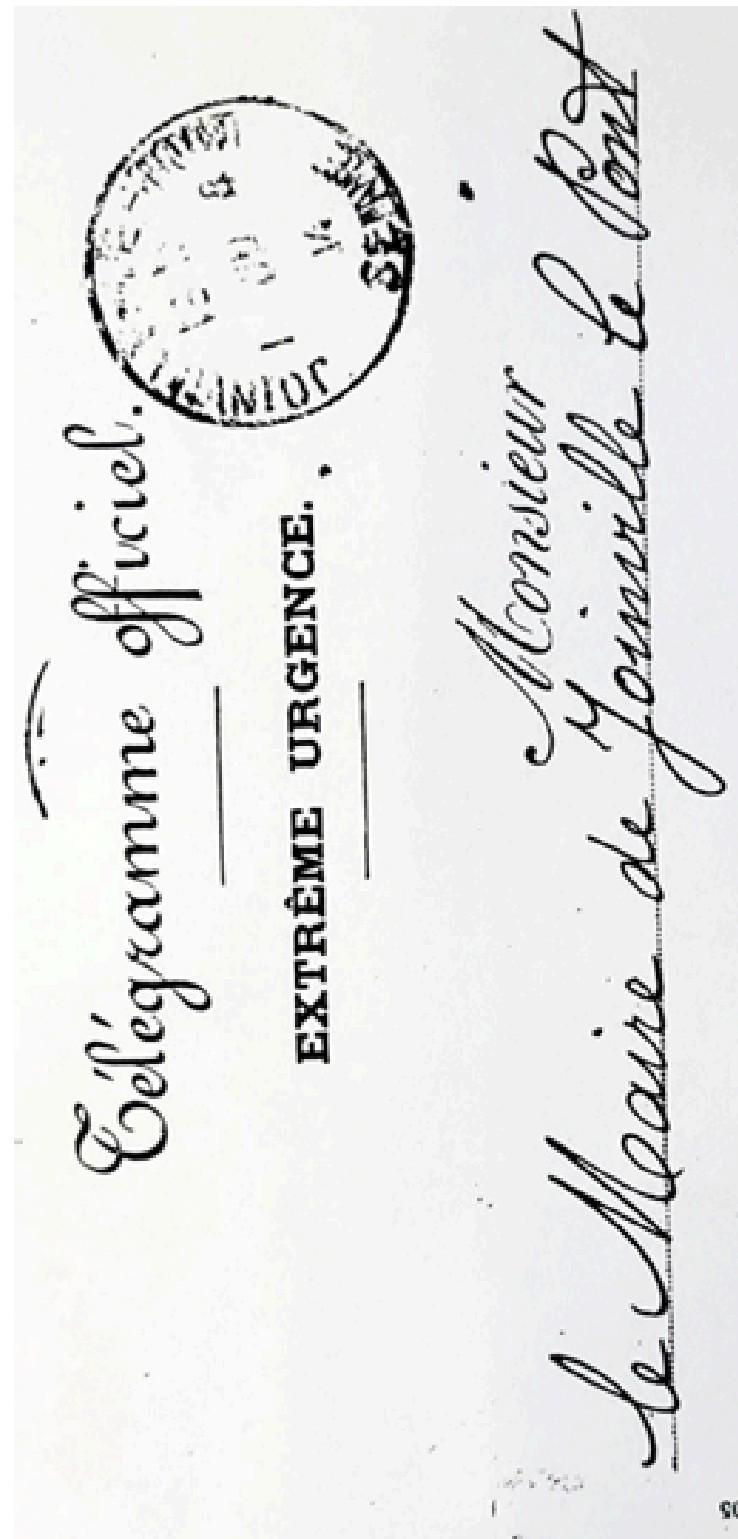 Télégramme officiel.
EXTRÊME URGENCE.
SEINE
Monsieur
le Maire de Joinville le Pont